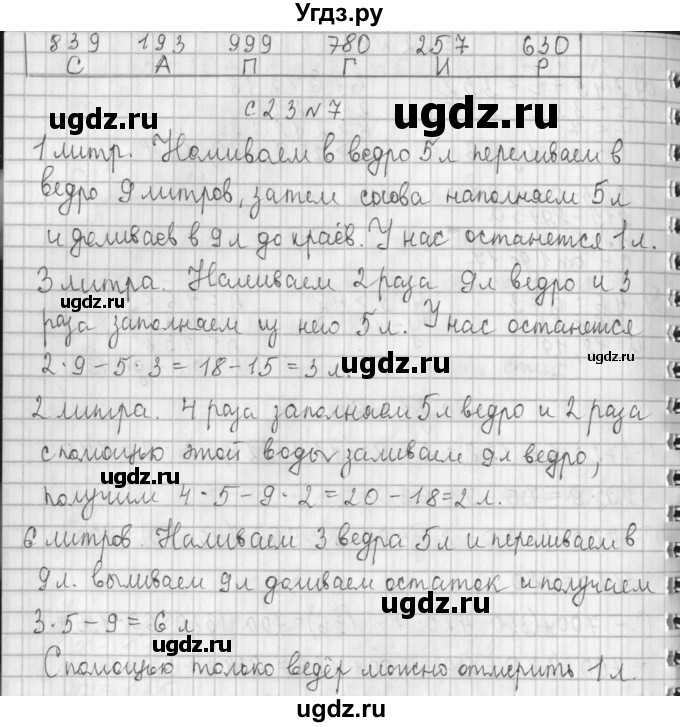 Угдз.ру
839 193 999 780 257 630
С А П Г И Р
ugdz.ru
с 23 №7
ugdz.ru
1 литр. Наливаем в ведро 5л переливаем в
ведро 9 литров, затем снова наполнаем 5л
и доливаев в 9л до краёв. У нас останется 1л.
3 литра. Наливаем 2 раза 9л ведро и 3
ugdz.ru
раза заполнаем из него 5л. У нас останется
ugdz.ru
2·9-5·3=18-15=3 л.
2 литра. 4 раза заполнаем 5л ведро и 2 раза
с помощью этой воды заливаем 9л ведро,
ugdz.ru
получим 4·5-9·2=20-18=2 л.
6 литров. Наливаем 3 ведра 5л и переливаем в
9л. выливаем 9л доливаем остаток и получаем
ugdz.ru
3·5-9=6 л
С помощью только ведёр можно отмерить 1л.
ugdz.ru
ugdz.ru